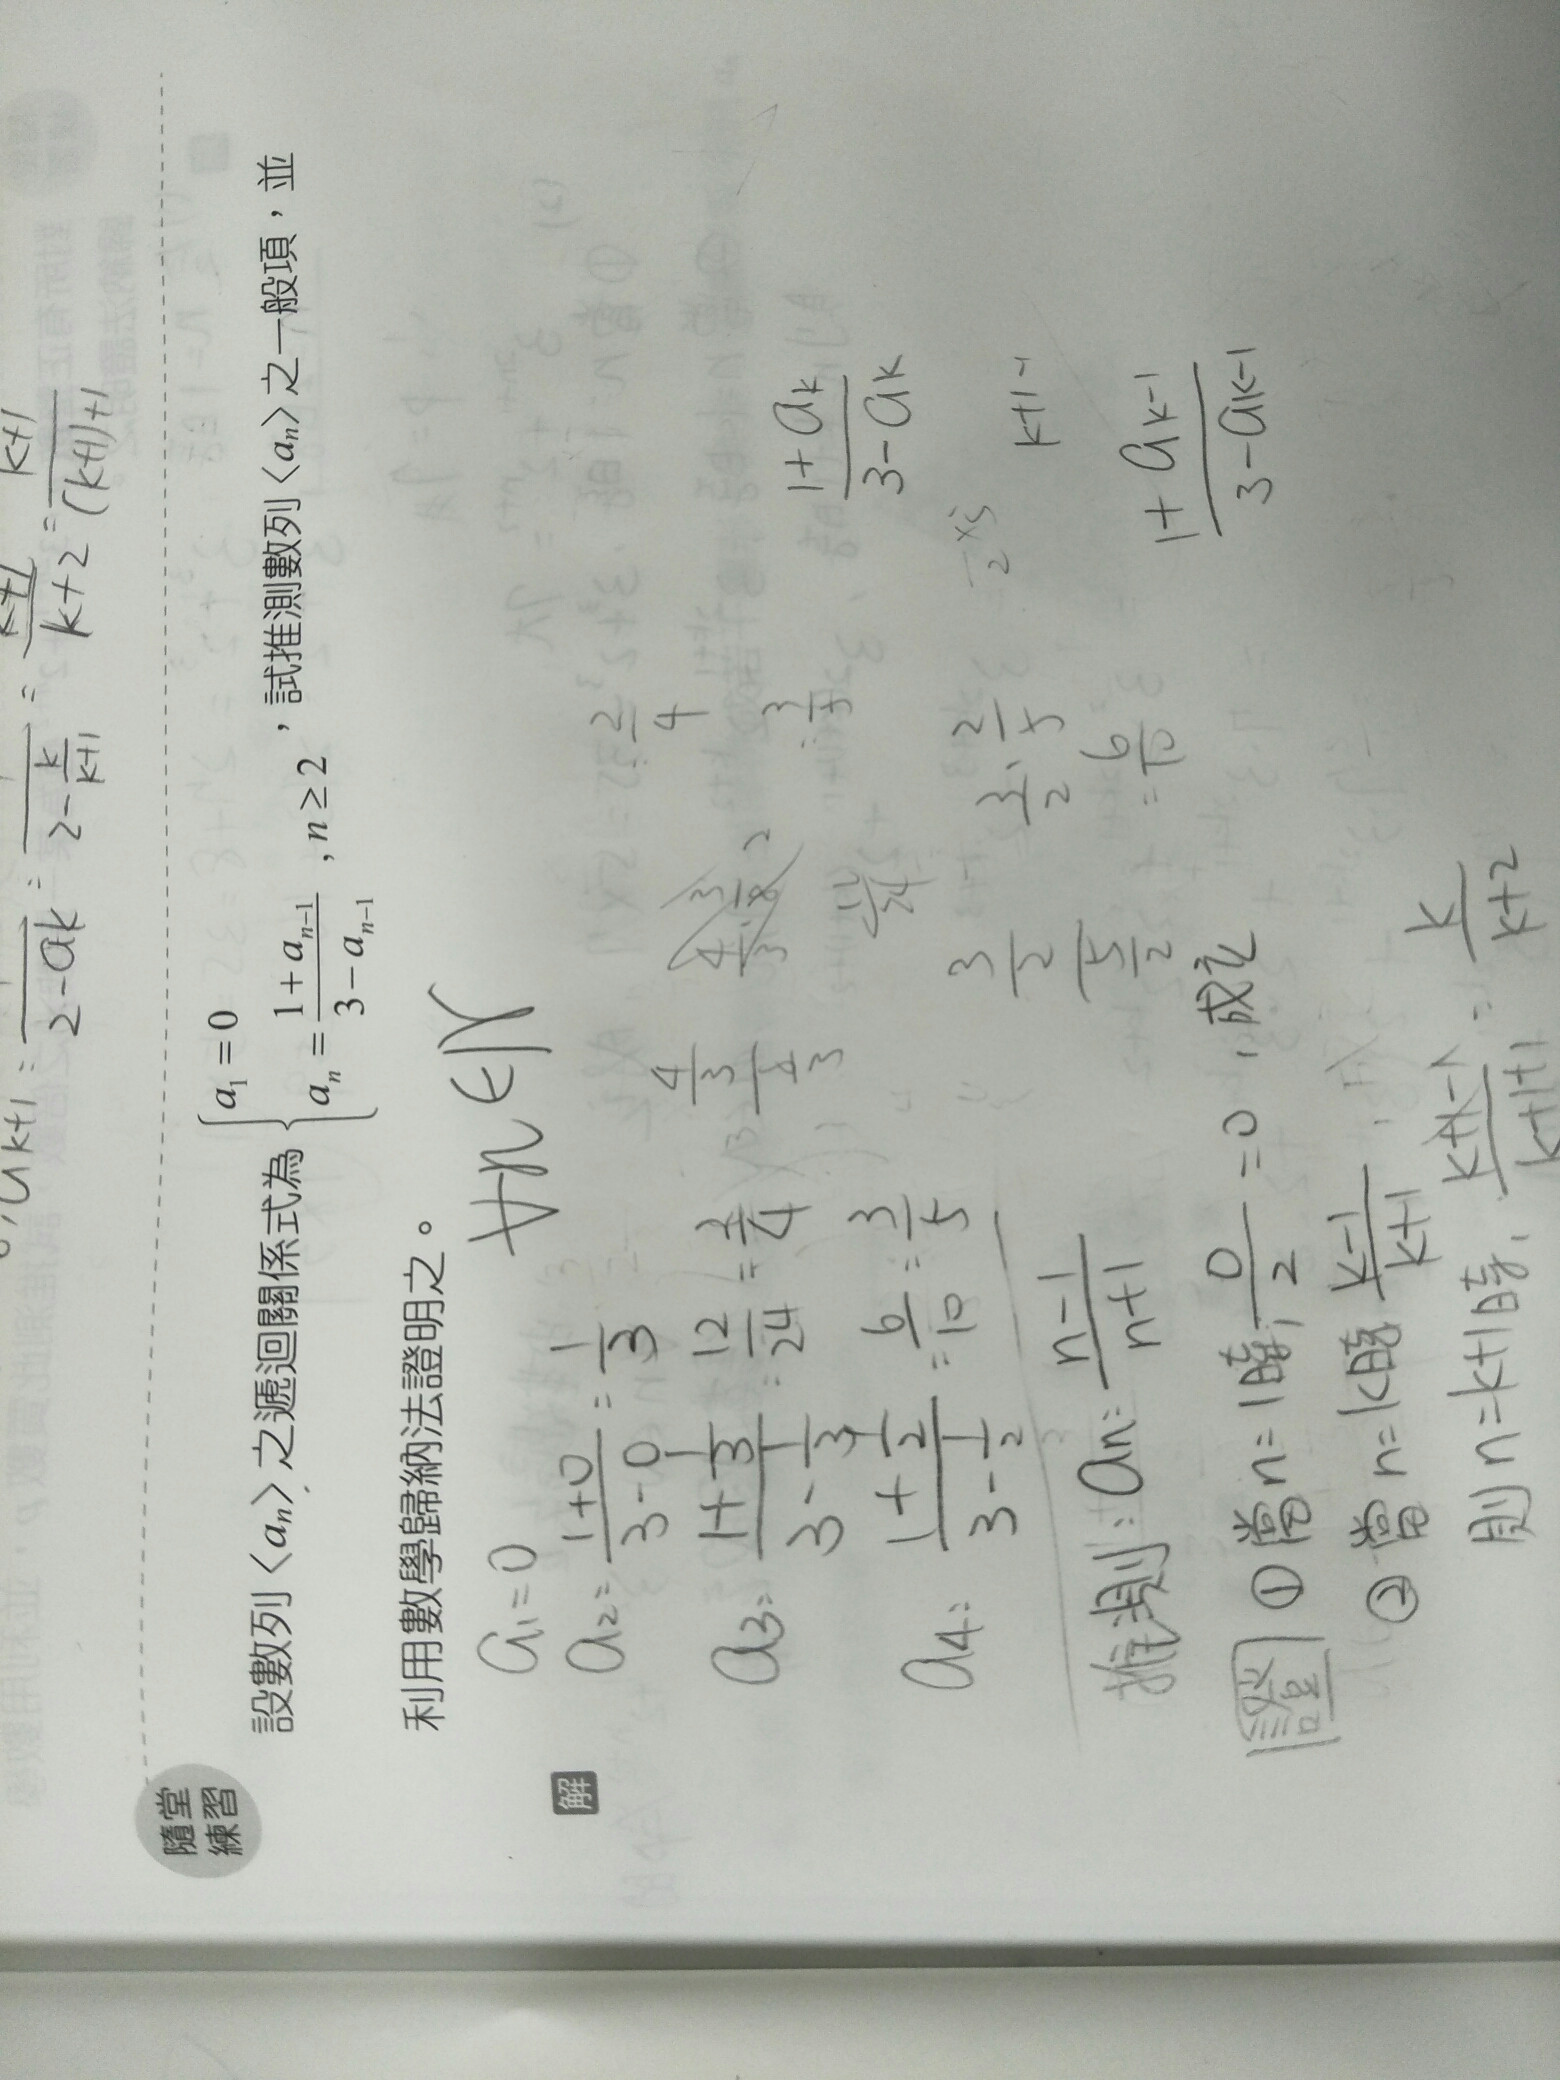 a_{k+1} = \frac{}{2-a_k} = \frac{}{2-\frac{k}{k+1}} = \frac{k+1}{k+2} = \frac{k+1}{(k+1)+1}
隨堂練習
設數列〈a_n〉之遞迴關係式為 { a_1 = 0
a_n = \frac{1+a_{n-1}}{3-a_{n-1}} , n ≥ 2 ,試推測數列〈a_n〉之一般項,並
利用數學歸納法證明之。
∀n∈N
解
a_1 = 0
a_2 = \frac{1+0}{3-0} = \frac{1}{3}
a_3 = \frac{1+\frac{1}{3}}{3-\frac{1}{3}} = \frac{12}{24} = \frac{2}{4}
a_4 = \frac{1+\frac{1}{2}}{3-\frac{1}{2}} = \frac{6}{10} = \frac{3}{5}
\frac{\frac{4}{3}}{}
\frac{2}{4}
\frac{12}{24}
\frac{\frac{3}{2}}{\frac{5}{2}}
\frac{3}{2} \cdot \frac{2}{5}
= \frac{6}{10}
\frac{1+a_k}{3-a_k}
k+1-1
\frac{1+a_{k-1}}{3-a_{k-1}}
推測: a_n = \frac{n-1}{n+1}
證 ① 當n=1時, \frac{0}{2} = 0 , 成立
② 當n=k時 \frac{k-1}{k+1} ,
則n=k+1時, \frac{k+1-1}{k+1+1} = \frac{k}{k+2}